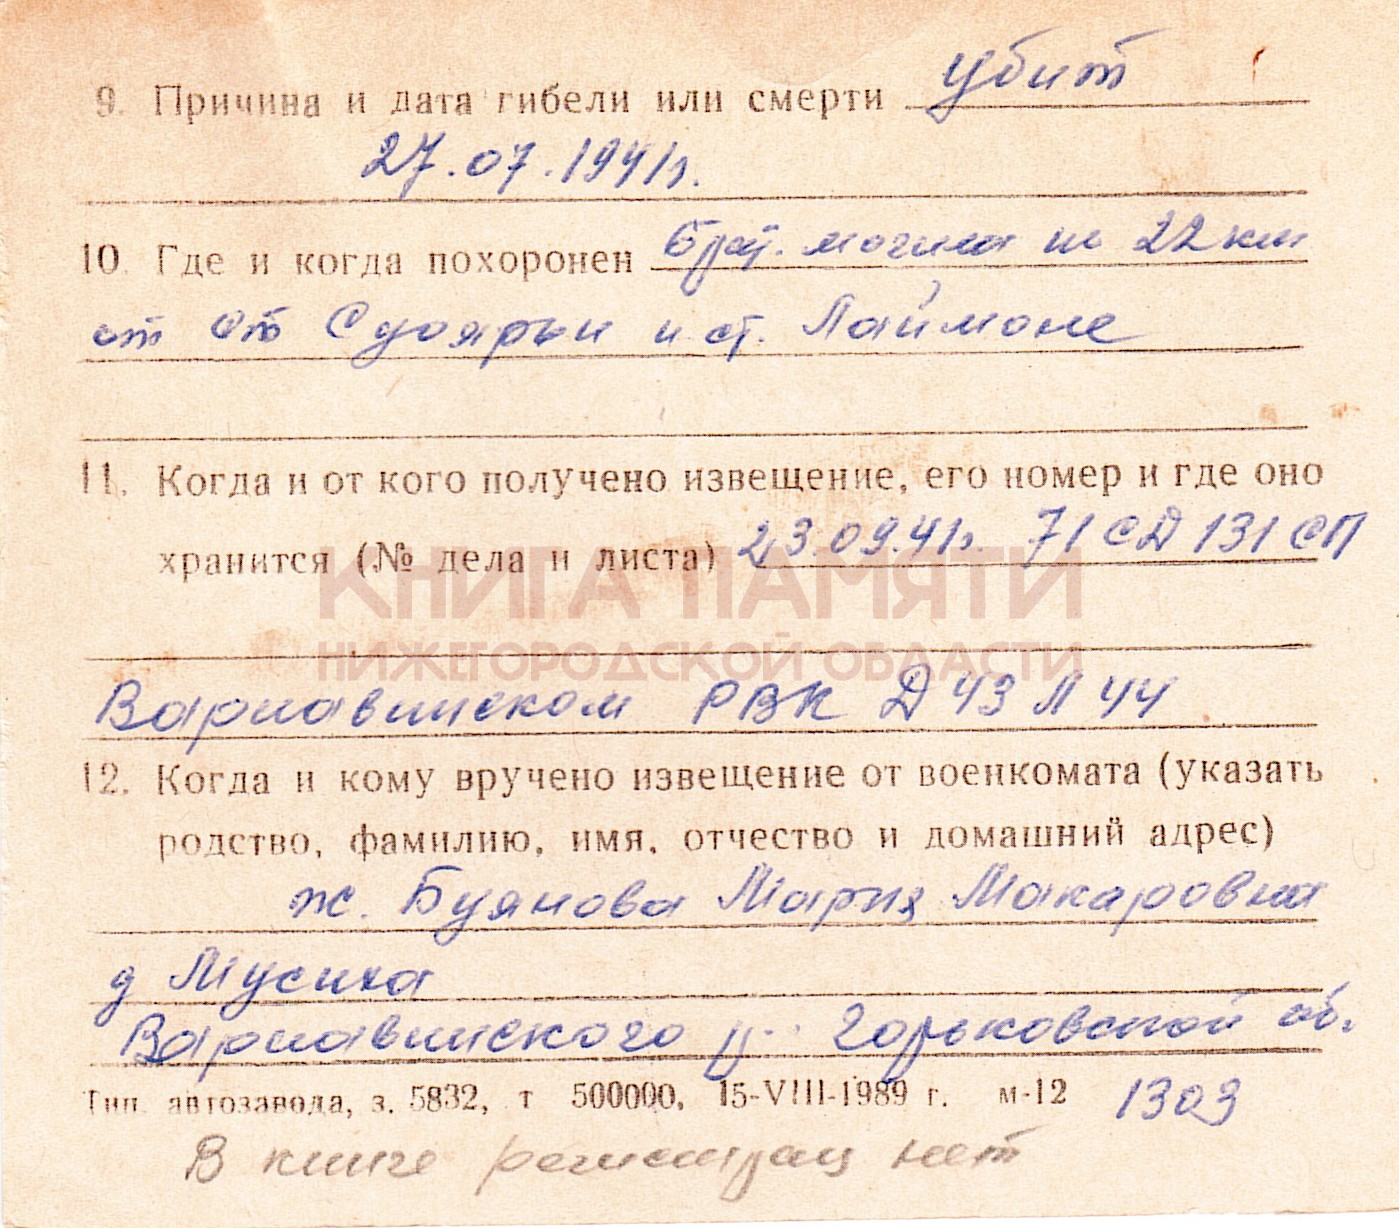 9. Причина и дата гибели или смерти убит
27.07.1941г.
10. Где и когда похоронен брат. могила на 22 км
от ст Суоярьи и ст. Лаймоне
11. Когда и от кого получено извещение, его номер и где оно
хранится (№ дела и листа) 23.09.41г. 71 СД 131 СП
КНИГА ПАМЯТИ
НИЖЕГОРОДСКОЙ ОБЛАСТИ
Варнавинском РВК Д 43 Л 44
12. Когда и кому вручено извещение от военкомата (указать
родство, фамилию, имя, отчество и домашний адрес)
ж. Буянова Мария Макаровна
д Мусиха
Варнавинского р- Горьковской об.
Тип. автозавода, з. 5832, т 500000, 15-VIII-1989 г. м-12 1303
В книге регистрац нет